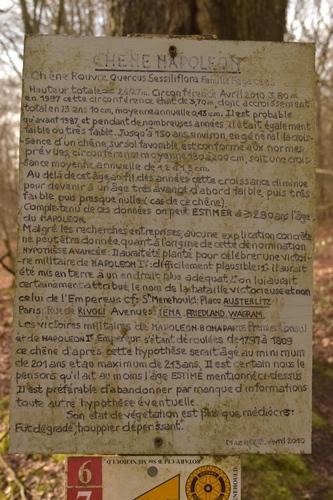 CHÊNE NAPOLEON
Chêne Rouvre Quercus Sessiliflora Famille Fagacées
Hauteur totale Circonférence Avril 2010 3.80m
en 1997 cette circonférence était de 3,70m, donc accroissement
total en 13 ans 10cm, moyenne annuelle Il est probable
qu'avant 1987 et pendant de nombreuses années il était également
faible ou très faible. Jusqu'à 150 ans environ, en général la crois-
sance d'un chêne, sur sol favorable, est conforme aux normes
prévues, circonférence moyenne 180 à 200 cm, soit une crois-
sance moyenne annuelle de 1,2 à 1,3 cm.
Au delà de cet âge, au fil des années cette croissance diminue
pour devenir à un âge très avancé d'abord faible puis très
faible puis presque nulle (cas de ce chêne).
Compte tenu de ces données on peut ESTIMER à ≥ 280 ans l'âge
du NAPOLEON.
Malgré les recherches entreprises, aucune explication concrète
ne peut être donnée, quant à l'origine de cette dénomination
HYPOTHÈSE AVANCÉE: Il aurait été planté pour célébrer une victoi-
re militaire de NAPOLEON Ier: difficilement plausible: il aurait
été mis en terre à un endroit plus adéquat. On lui aurait
certainement attribué le nom de la bataille victorieuse et non
celui de l'Empereur: cfs Ste Menehould: Place AUSTERLITZ
Paris: Rue de RIVOLI Avenues: IENA, FRIEDLAND, WAGRAM.
Les victoires militaires de NAPOLEON BONAPARTE Premier Consul
et de NAPOLEON Ier Empereur s'étant déroulées de 1797 à 1809
ce chêne d'après cette hypothèse serait âgé au minimum
de 201 ans et au maximum de 213 ans. Il est certain nous le
pensons qu'il ait au moins l'âge ESTIMÉ mentionné ci-dessus
Il est préférable d'abandonner par manque d'informations
toute autre hypothèse éventuelle.
Son état de végétation est plus que médiocre:
Fût dégradé, houppier dépérissant.
Avril 2010
6
7